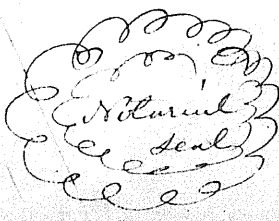 Notarial
seal